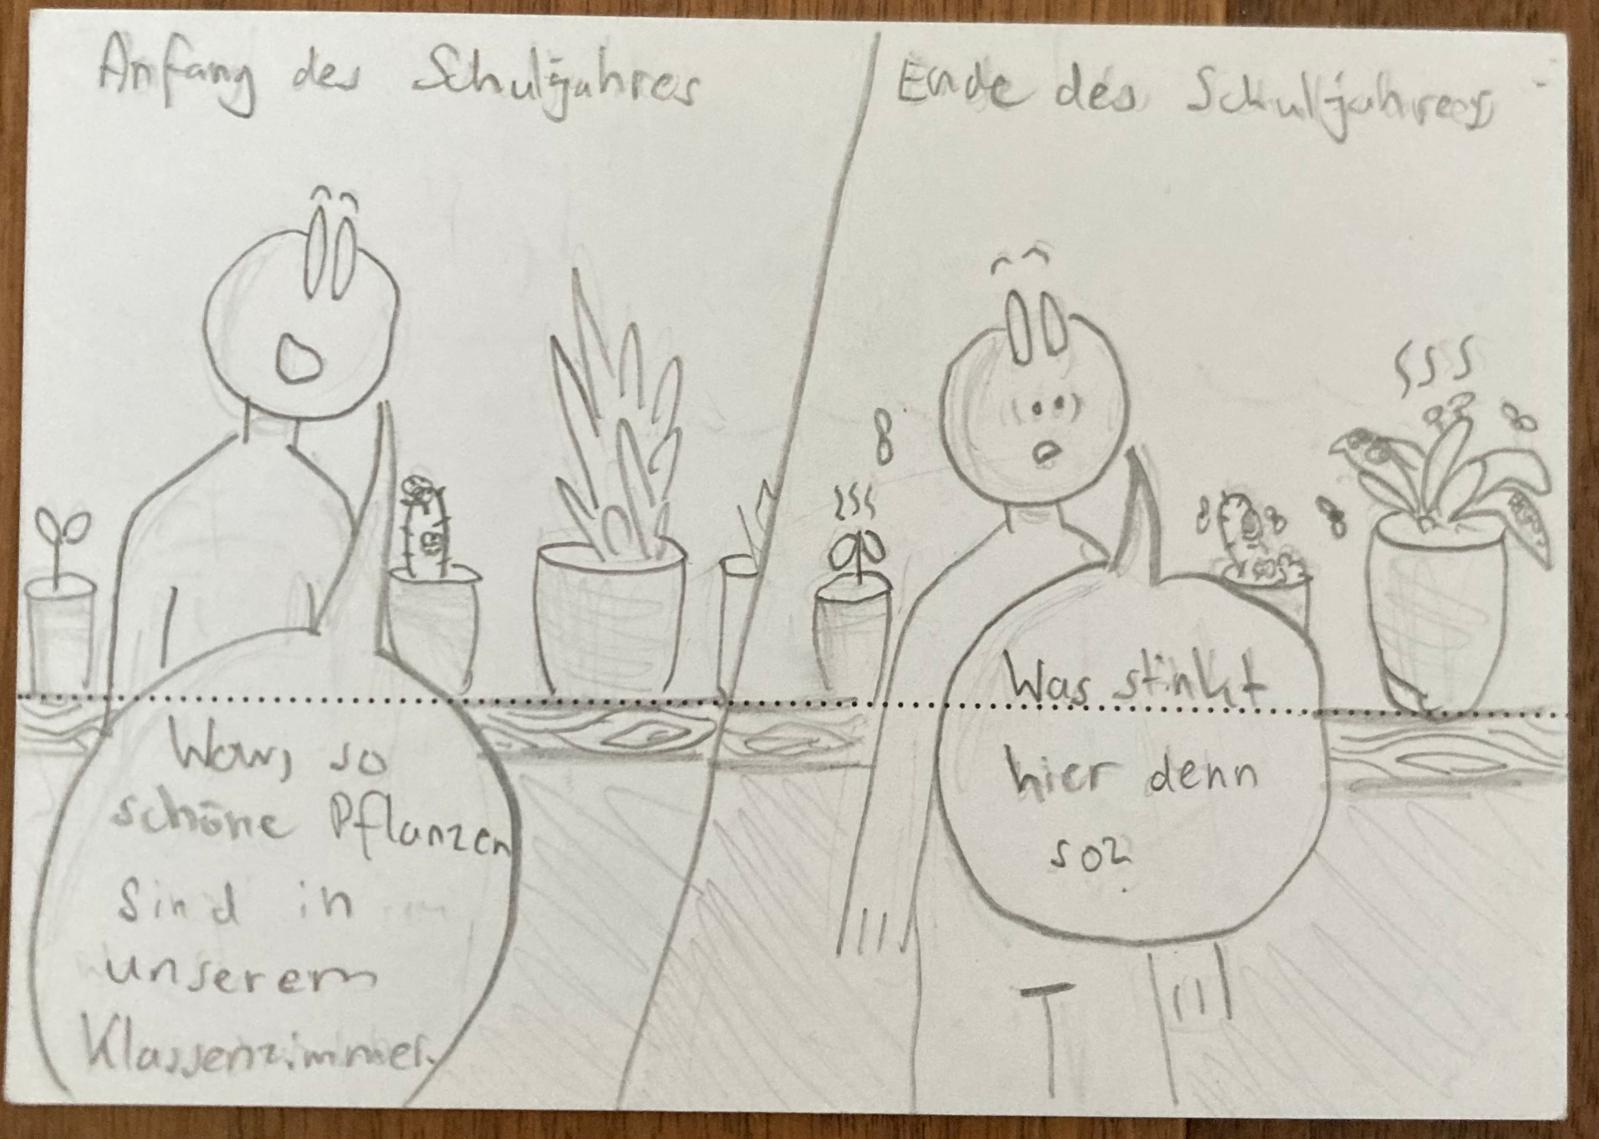 Anfang des Schuljahres
Wow, so
schöne Pflanzen
sind in
unserem
Klassenzimmer.
Ende des Schuljahres
Was stinkt
hier denn
so?